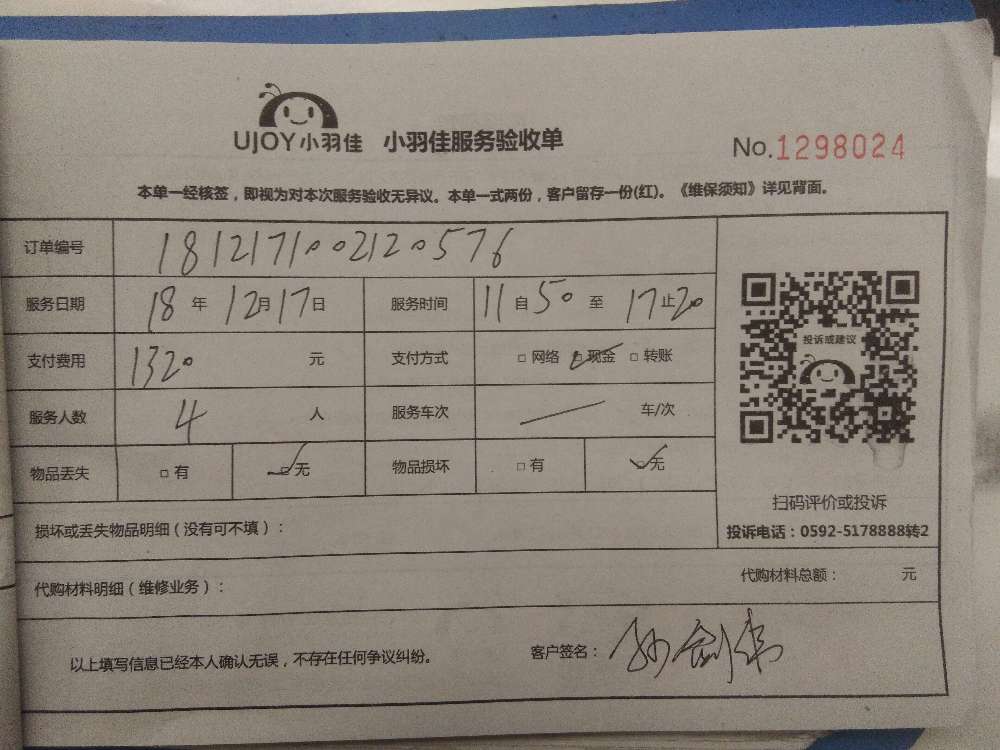 UJOY小羽佳 小羽佳服务验收单
No.1298024
本单一经核签，即视为对本次服务验收无异议。本单一式两份，客户留存一份(红)。《维保须知》详见背面。
订单编号 1812171002120576
服务日期 18 年 12月17日 服务时间 11自50至17止20
支付费用 1320 元 支付方式 □网络 □现金 □转账
服务人数 4 人 服务车次 车/次
物品丢失 □有 □无 物品损坏 □有 □无
投诉或建议
扫码评价或投诉
投诉电话：0592-5178888转2
损坏或丢失物品明细（没有可不填）：
代购材料明细（维修业务）： 代购材料总额： 元
以上填写信息已经本人确认无误，不存在任何争议纠纷。 客户签名：